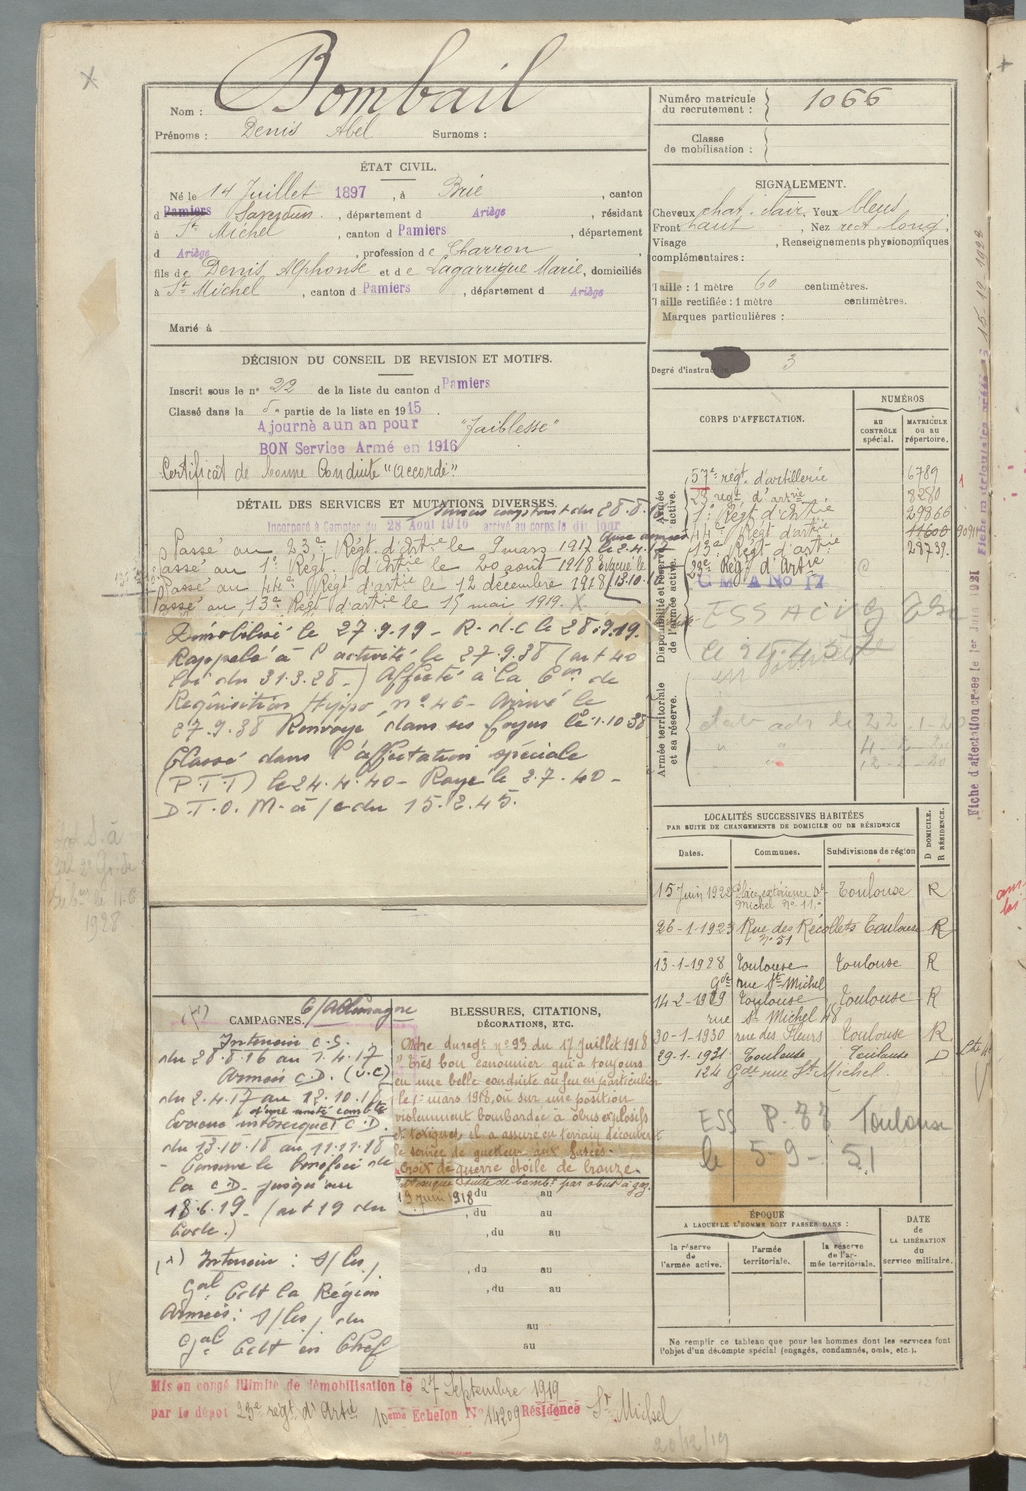 Nom : Bombail
Prénoms : Denis Abel Surnoms :
Numéro matricule du recrutement : 1066
Classe de mobilisation :
ÉTAT CIVIL.
Né le 14 Juillet 1897, à Brie, canton
d Pamiers Saverdun, département d Ariège, résidant
à St Michel, canton d Pamiers, département
d Ariège, profession de Charron
fils de Denis Alphonse et de Lagarrigue Marie, domiciliés
à St Michel, canton d Pamiers, département d Ariège
Marié à
SIGNALEMENT.
Cheveux chat. clair. Yeux bleus
Front haut, Nez rect. long.
Visage , Renseignements physionomiques
complémentaires :
Taille : 1 mètre 60 centimètres.
Taille rectifiée : 1 mètre centimètres.
Marques particulières :
Degré d'instruction 3
DÉCISION DU CONSEIL DE REVISION ET MOTIFS.
Inscrit sous le n° 22 de la liste du canton d Pamiers
Classé dans la 5e partie de la liste en 1915.
Ajourné a un an pour "faiblesse"
BON Service Armé en 1916
Certificat de bonne Conduite "accordé"
DÉTAIL DES SERVICES ET MUTATIONS DIVERSES.
Incorporé à compter du 28 Août 1916 arrivé au corps le dit jour
Passé au 23e Régt. d'Artie le 9 mars 1917
Passé au 1er Régt. d'Artie le 20 août 1918
Passé au 44e Régt d'artie le 12 décembre 1918
Passé au 13e Régt d'artie le 15 mai 1919. X
Démobilisé le 27.9.19 - R.d.c le 28.9.19.
Rappelé à l'activité le 27.9.38 (art 40
loi du 31.3.28-) Affecté à la Con de
Requisition Hippo, n° 46 - Arrivé le
27.9.38 Renvoyé dans ses foyers le 1.10.38
Classé dans l'affectation spéciale
(P.T.T) le 24.4.40 - Rayé le 2.7.40 -
D.T.O.M. à /c du 15.2.45.
CORPS D'AFFECTATION.
NUMÉROS
AU CONTRÔLE spécial.
MATRICULE OU AU répertoire.
Armée active.
57e régt d'artillerie 6789
23e régt d'artie 8280
1er Régt d'Artie 29966
44e Régt d'artie 11600
13e Régt d'artie 28739
Disponibilité et réserve de l'armée active.
23e Régt d'Artie
C M A No 17
Armée territoriale et sa réserve.
LOCALITÉS SUCCESSIVES HABITÉES
PAR SUITE DE CHANGEMENTS DE DOMICILE OU DE RÉSIDENCE
D DOMICILE. R RÉSIDENCE.
Dates. Communes. Subdivisions de région
15 Juin 1922 Place extérieure St Michel N° 11. Toulouse R
26-1-1923 Rue des Récollets n° 51 Toulouse R
13-1-1928 Toulouse Gde rue St Michel Toulouse R
14-2-1929 Toulouse rue St Michel 48 Toulouse R
30-1-1930 rue des Fleurs Toulouse R
29-1-1931 Toulouse Toulouse D
124 Gde rue St Michel.
ESS P. 87 Toulouse
le 5-9-51
CAMPAGNES. C/Allemagne
Intérieur C.S.
du 28.8.16 au 1.4.17
Armées C.D. (U.C)
du 2.4.17 au 12.10.18
Evacué intoxiqué C.D.
d'une unité combte
du 13.10.18 au 11.11.18
- Conserve le bénéfice de
la C.D. jusqu'au
18.6.19 - (art 19 du
Code.)
(1) Intérieur : S/les
Gal Cdt la Région
Armées : S/les du
Gal Cdt en Chef
BLESSURES, CITATIONS,
DÉCORATIONS, ETC.
Ordre du régt n° 93 du 17 juillet 1918
"Très bon canonnier qui a toujours
eu une belle conduite au feu en particulier
le 1er mars 1918, où sur une position
violemment bombardée à obus explosifs
et toxiques, il a assuré en terrain découvert
le service de guetteur aux fusées.
Croix de guerre étoile de bronze.
Intoxiqué suite de bombt par obus à gaz.
19 juin 1918
, du au
, du au
, du au
, du au
, du au
au
au
ÉPOQUE
A LAQUELLE L'HOMME DOIT PASSER DANS :
la réserve de l'armée active.
l'armée territoriale.
la réserve de l'armée territoriale.
DATE de LA LIBÉRATION du service militaire.
Ne remplir ce tableau que pour les hommes dont les services font
l'objet d'un décompte spécial (engagés, condamnés, omis, etc.).
Mis en congé illimité de démobilisation le 27 Septembre 1919
par le dépôt 23e regt d'Artie 10ème Echelon N° 14209 Résidence St Michel
20/12/19
Fiche d'affectation créée le 1er Juin 1921